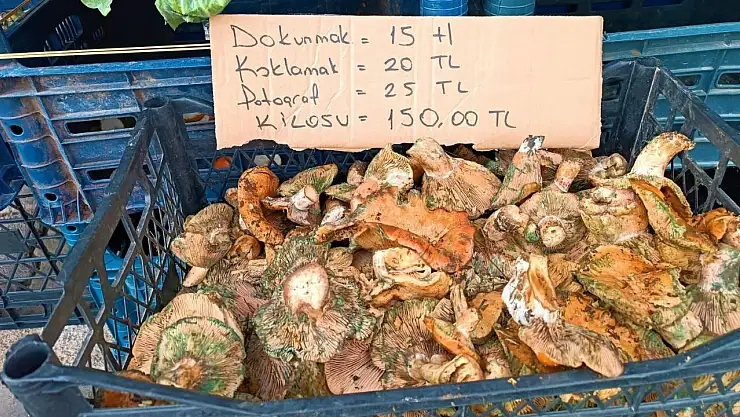 Dokunmak = 15 tl
Koklamak = 20 TL
Fotograf = 25 TL
KiLOSU = 150,00 TL